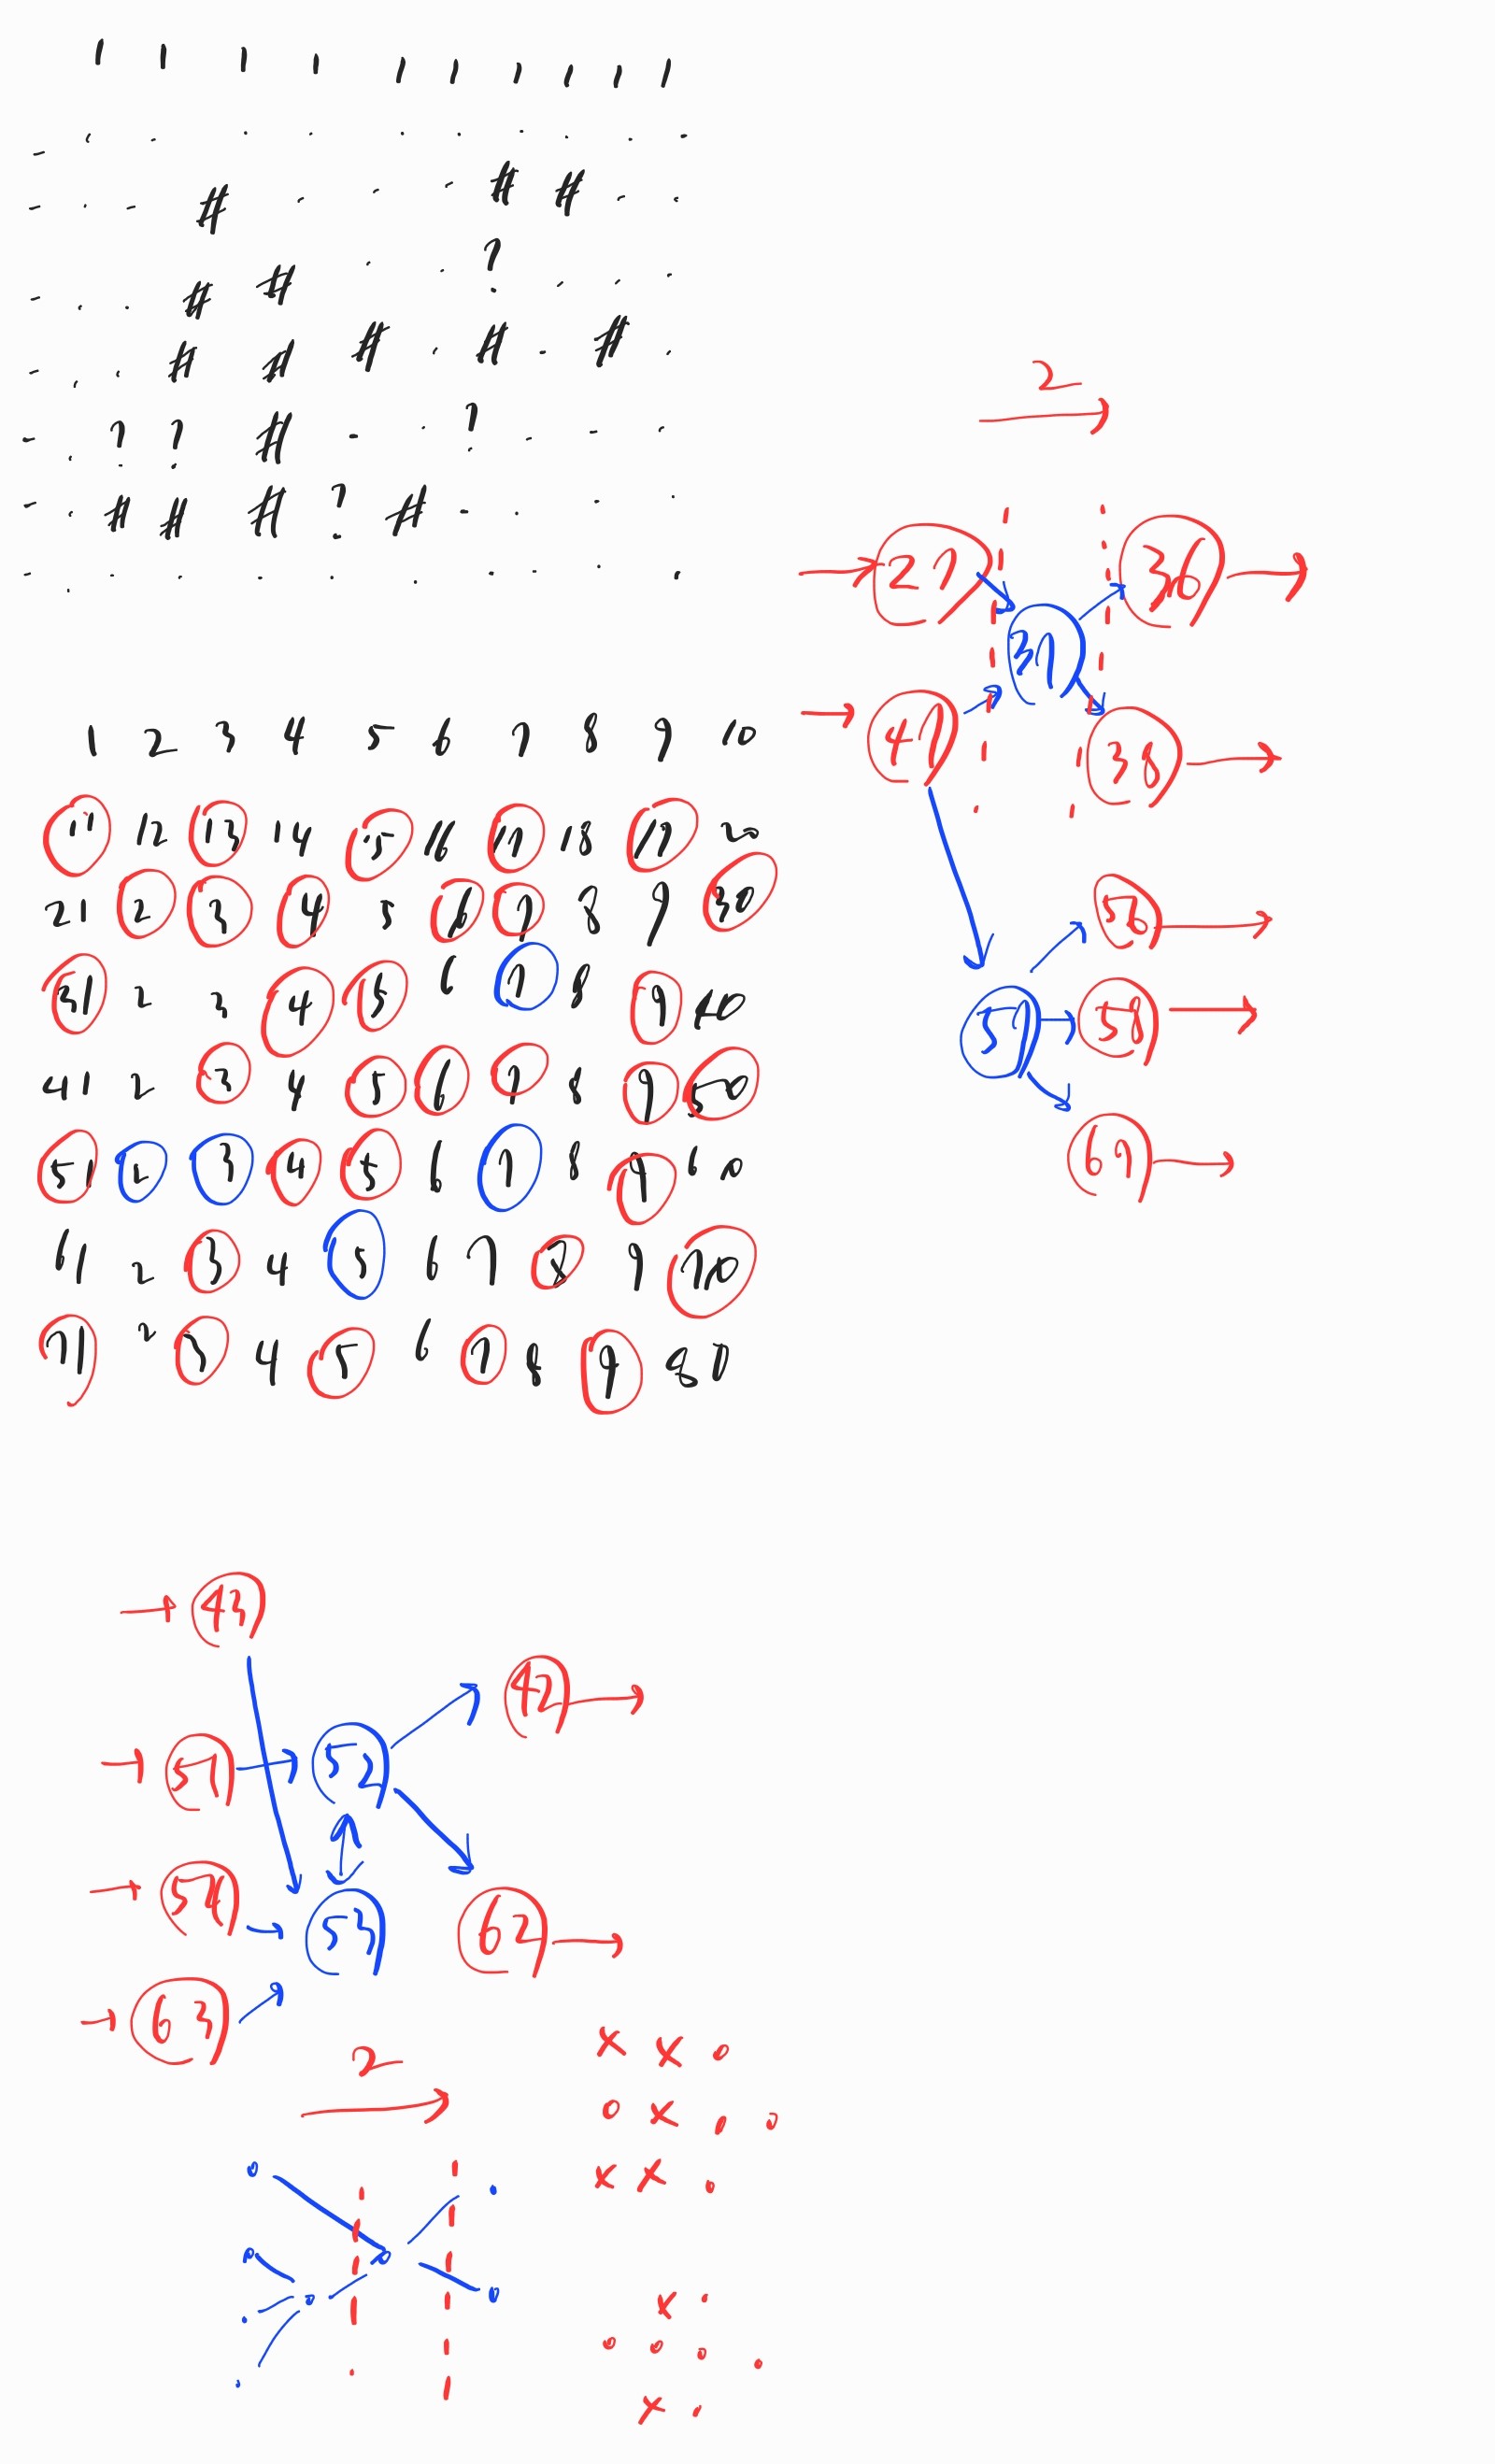 1 1 1 1 1 1 1 1 1 1
- . . . . . . . . . .
- . . # . . . # # . .
- . . # # . . ? . . .
- . . # # # . # . # .
- . ? ? # . . ? . . .
- . # # # ? # . . . .
- . . . . . . . . . .
1 2 3 4 5 6 7 8 9 10
11 12 13 14 15 16 17 18 19 20
21 2 3 4 5 6 7 8 9 30
31 2 3 4 5 6 7 8 9 40
41 2 3 4 5 6 7 8 9 50
51 2 3 4 5 6 7 8 9 60
61 2 3 4 5 6 7 8 9 70
71 2 3 4 5 6 7 8 9 80
2
27 36
37
47 38
56
57 58
67
43
42
51 52
54 53 62
63
2
x x o
o x . o
x x o
x .
o o o .
x .